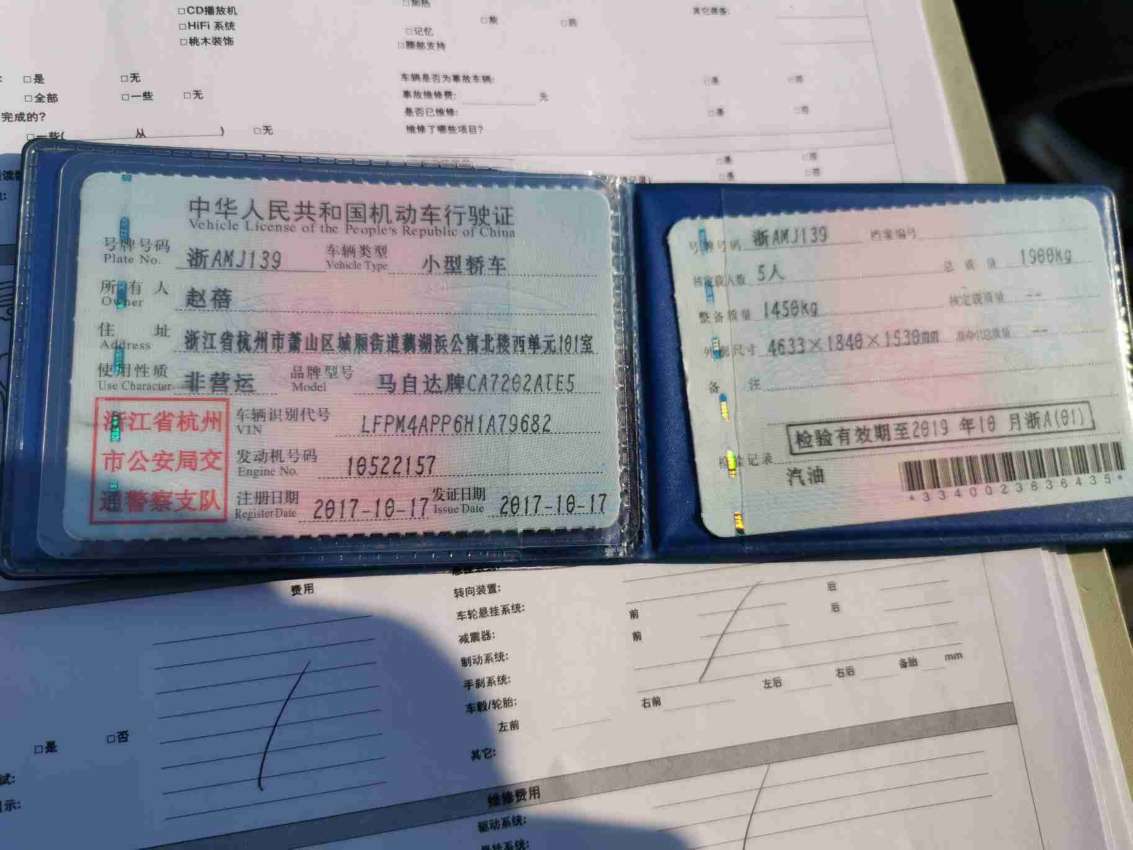 □CD播放机
□HiFi 系统
□桃木装饰
□加热
□记忆
□腰部支持
其它装备:
□是 □无
□全部 □一些 □无
完成的?
□一些( 从 ) □无
车辆是否为事故车辆: □是 □否
事故维修费: 元
是否已维修: □是 □否
维修了哪些项目?
□是 □否
□是 □否
中华人民共和国机动车行驶证
Vehicle License of the People's Republic of China
号牌号码 浙AMJ139 车辆类型 小型轿车
Plate No. Vehicle Type
所有人 赵蓓
Owner
住址 浙江省杭州市萧山区城厢街道鹅湖浜公寓北楼西单元101室
Address
使用性质 非营运 品牌型号 马自达牌CA7202ATE5
Use Character Model
浙江省杭州
市公安局交
通警察支队
车辆识别代号 LFPM4APP6H1A79682
VIN
发动机号码 10522157
Engine No.
注册日期 2017-10-17 发证日期 2017-10-17
Register Date Issue Date
号牌号码 浙AMJ139 档案编号
核定载人数 5人 总质量 1900kg
整备质量 1450kg 核定载质量 --
外廓尺寸 4633×1840×1530mm 准牵引总质量 --
备注
检验有效期至2019 年10 月浙A(01)
检验记录
汽油
*3340023636435*
费用
转向装置:
车轮悬挂系统: 前 后
减震器: 前 后
制动系统:
手刹系统:
车毂/轮胎: 右前 左后 右后 备胎 mm
左前
其它:
□是 □否
试:
维修费用
驱动系统: